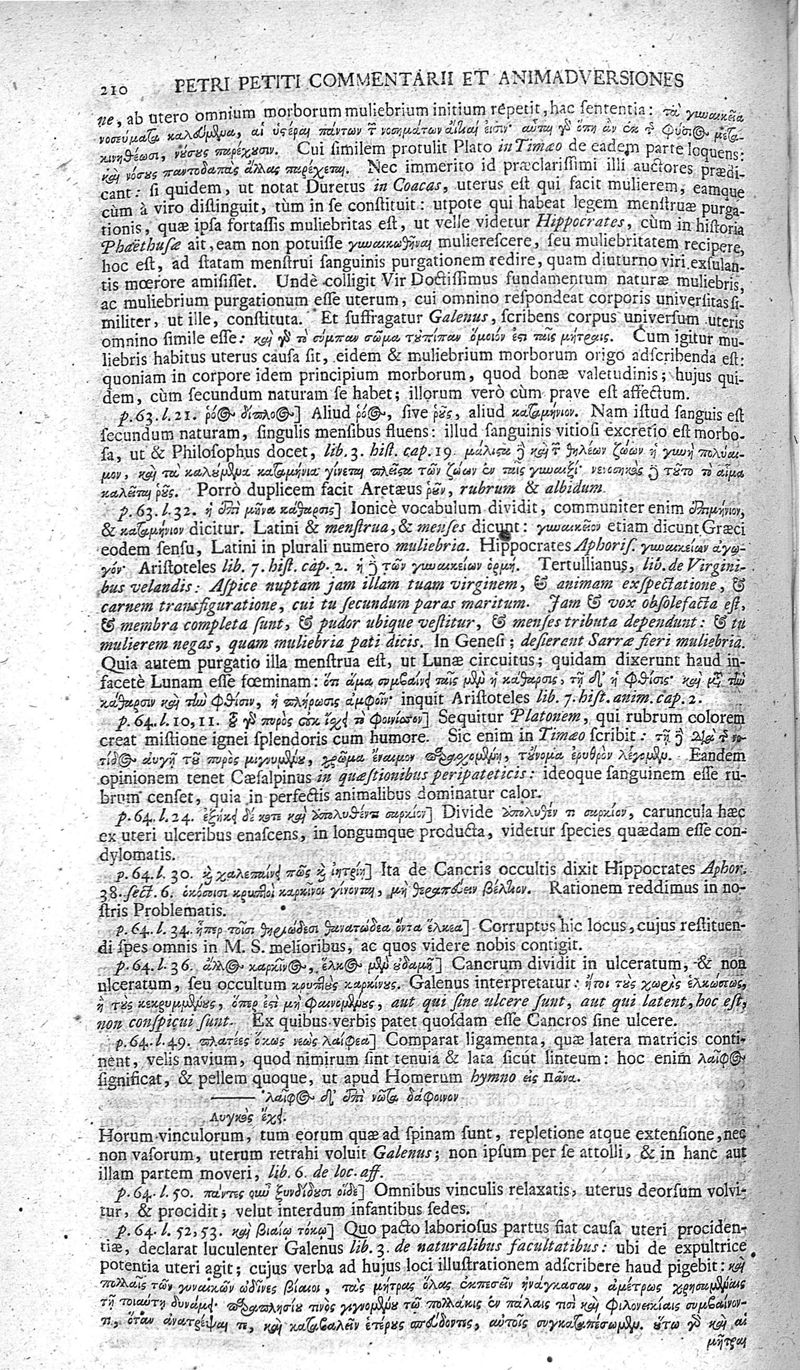 210 PETRI PETITI COMMENTARII ET ANIMADVERSIONES
ne, ab utero omnium morborum muliebrium initium repetit, hac sententia: τὰ γυναικεῖα
νοσεύματα καλούμενα, αἱ ὑστέραι πάντων τῶν νοσημάτων αἴτιαί εἰσιν· αὗται γὰρ ὅπη ἂν ἐκ τῆς φύσιος μετα-
κινηθέωσι, νούσους παρέχουσιν. Cui similem protulit Plato in Timæo de eadem parte loquens:
καὶ νόσους παντοδαπὰς ἄλλας παρέχεται. Nec immerito id præclarissimi illi auctores prædi-
cant: si quidem, ut notat Duretus in Coacas, uterus est qui facit mulierem, eamque
cùm à viro distinguit, tùm in se constituit: utpote qui habeat legem menstruæ purga-
tionis, quæ ipsa fortassis muliebritas est, ut velle videtur Hippocrates, cùm in historia
Phaëthusæ ait, eam non potuisse γυναικωθῆναι mulierescere, seu muliebritatem recipere,
hoc est, ad statam menstrui sanguinis purgationem redire, quam diuturno viri exsulan-
tis mœrore amisisset. Undè colligit Vir Doctissimus fundamentum naturæ muliebris,
ac muliebrium purgationum esse uterum, cui omnino respondeat corporis universitas si-
militer, ut ille, constituta. Et suffragatur Galenus, scribens corpus universum uteris
omnino simile esse: καὶ γὰρ τὸ σύμπαν σῶμα τοὐπίπαν ὅμοιόν ἐστι ταῖς μήτραις. Cum igitur mu-
liebris habitus uterus causa sit, eidem & muliebrium morborum origo adscribenda est:
quoniam in corpore idem principium morborum, quod bonæ valetudinis; hujus qui-
dem, cùm secundum naturam se habet; illorum verò cùm prave est affectum.
p. 63. l. 21. ῥόος διπλόος] Aliud ῥόος, sive ῥοῦς, aliud καταμήνιον. Nam istud sanguis est
secundum naturam, singulis mensibus fluens: illud sanguinis vitiosi excretio est morbo-
sa, ut & Philosophus docet, lib. 3. hist. cap. 19. μάλιστα δὲ καὶ τῶν θηλέων ζώων ἡ γυνὴ πολύαι-
μον, καὶ τὰ καλούμενα καταμήνια γίνεται πλεῖστα τῶν ζώων ἐν ταῖς γυναιξί· νενοσηκὸς δὲ τοῦτο τὸ αἷμα
καλεῖται ῥοῦς. Porrò duplicem facit Aretæus ῥοῦν, rubrum & albidum.
p. 63. l. 32. ἡ ἐπὶ μῆνα κάθαρσις] Ionicè vocabulum dividit, communiter enim ἐπιμήνιον,
& καταμήνιον dicitur. Latini & menstrua, & menses dicunt: γυναικεῖον etiam dicunt Græci
eodem sensu, Latini in plurali numero muliebria. Hippocrates Aphoris. γυναικείων ἀγω-
γόν· Aristoteles lib. 7. hist. cap. 2. ἡ δὲ τῶν γυναικείων ὁρμή. Tertullianus, lib. de Virgini-
bus velandis: Aspice nuptam jam illam tuam virginem, & animam exspectatione, &
carnem transfiguratione, cui tu secundum paras maritum. Jam & vox obsolefacta est,
& membra completa sunt, & pudor ubique vestitur, & menses tributa dependunt: & tu
mulierem negas, quam muliebria pati dicis. In Genesi; desierant Sarræ fieri muliebria.
Quia autem purgatio illa menstrua est, ut Lunæ circuitus; quidam dixerunt haud in-
facetè Lunam esse fœminam: ὅτι ἅμα συμβαίνει ταῖς μὲν ἡ κάθαρσις, τῇ δὲ ἡ φθίσις· καὶ μετὰ τὴν
κάθαρσιν καὶ τὴν φθίσιν, ἡ πλήρωσις ἀμφοῖν· inquit Aristoteles lib. 7. hist. anim. cap. 2.
p. 64. l. 10, 11. οὐ γὰρ πυρὸς οὐκ ἴσχει τὸ φοινίσσον] Sequitur Platonem, qui rubrum colorem
creat mistione ignei splendoris cum humore. Sic enim in Timæo scribit: τῇ δὲ διὰ τῆς νο-
τίδος αὐγῇ τοῦ πυρὸς μιγνυμένου, χρῶμα ἔναιμον παρασχομένη, τοὔνομα ἐρυθρὸν λέγομεν. Eandem
opinionem tenet Cæsalpinus in quæstionibus peripateticis: ideoque sanguinem esse ru-
brum censet, quia in perfectis animalibus dominatur calor.
p. 64. l. 24. ἐξήκει δέ κοτε καὶ ὑπολυθέντι σαρκίον] Divide ὑπολυθέν τι σαρκίον, caruncula hæc
ex uteri ulceribus enascens, in longumque producta, videtur species quædam esse con-
dylomatis.
p. 64. l. 30. καὶ χαλεπαίνει πῶς καὶ ἰητρίη] Ita de Cancris occultis dixit Hippocrates Aphor.
38. sect. 6. ὁκόσοισι κρυπτοὶ καρκίνοι γίνονται, μὴ θεραπεύειν βέλτιον. Rationem reddimus in no-
stris Problematis.
p. 64. l. 34. ἥπερ τοῖσι θηριώδεσι θανατώδεα ὄντα ἕλκεα] Corruptus hic locus, cujus restituen-
di spes omnis in M. S. melioribus, ac quos videre nobis contigit.
p. 64. l. 36. ἄλλος καρκῖνος, ἕλκος μὲν οὐδαμῆ] Cancrum dividit in ulceratum, & non
ulceratum, seu occultum κρυπτοὺς καρκίνους. Galenus interpretatur: ἤτοι τοὺς χωρὶς ἑλκώσεως,
ἢ τοὺς κεκρυμμένους, ὅπερ ἐστὶ μὴ φαινομένους, aut qui sine ulcere sunt, aut qui latent, hoc est,
non conspicui sunt. Ex quibus verbis patet quosdam esse Cancros sine ulcere.
p. 64. l. 49. πλατέες ὅκως νεὼς λαίφεα] Comparat ligamenta, quæ latera matricis conti-
nent, velis navium, quod nimirum sint tenuia & lata sicut linteum: hoc enim λαῖφος
significat, & pellem quoque, ut apud Homerum hymno εἰς Πᾶνα.
—— λαῖφος δ' ἐπὶ νῶτα δαφοινὸν
Λυγκὸς ἔχει.
Horum vinculorum, tum eorum quæ ad spinam sunt, repletione atque extensione, nec
non vasorum, uterum retrahi voluit Galenus; non ipsum per se attolli, & in hanc aut
illam partem moveri, lib. 6. de loc. aff.
p. 64. l. 50. πάντες οὖν ξυνδιδοῦσι οἵδε] Omnibus vinculis relaxatis, uterus deorsum volvi-
tur, & procidit; velut interdum infantibus sedes.
p. 64. l. 52, 53. καὶ βιαίω τόκω] Quo pacto laboriosus partus fiat causa uteri prociden-
tiæ, declarat luculenter Galenus lib. 3. de naturalibus facultatibus: ubi de expultrice
potentia uteri agit; cujus verba ad hujus loci illustrationem adscribere haud pigebit: καὶ
πολλαῖς τῶν γυναικῶν ὠδῖνες βίαιοι, τὰς μήτρας ὅλας ἐκπεσεῖν ἠνάγκασαν, ἀμέτρως χρησαμέναις
τῇ τοιαύτῃ δυνάμει· παραπλησίου τινὸς γιγνομένου τῷ πολλάκις ἐν πάλαις τισὶ καὶ φιλονεικίαις συμβαίνον-
τι, ὅταν ἀνατρέψαι τι, καὶ καταβαλεῖν ἑτέρους σπεύδοντες, αὐτοῖς συγκαταπέσωμεν. οὕτω γὰρ καὶ αἱ
μῆτραι